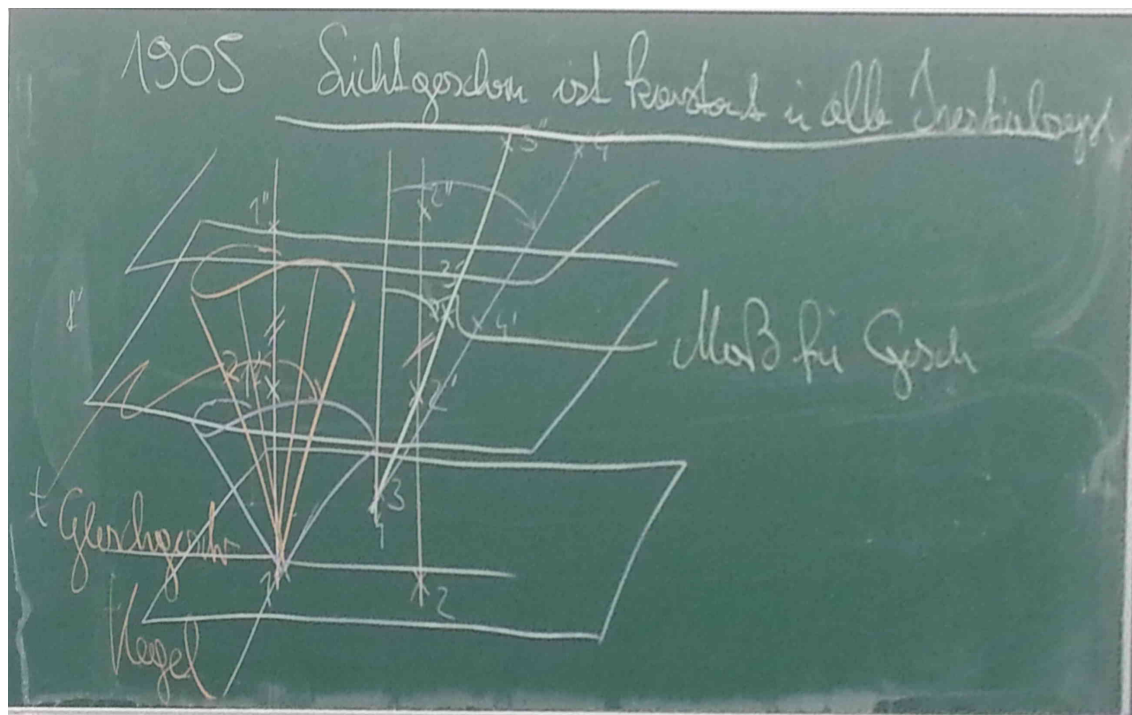 1905 Lichtgeschw ist konstant in alle Inertialsys
1" 2" 3" 4"
3'
4'
Maß für Gesch
2'
t
3
4
Gleichgesch
1
2
Kegel